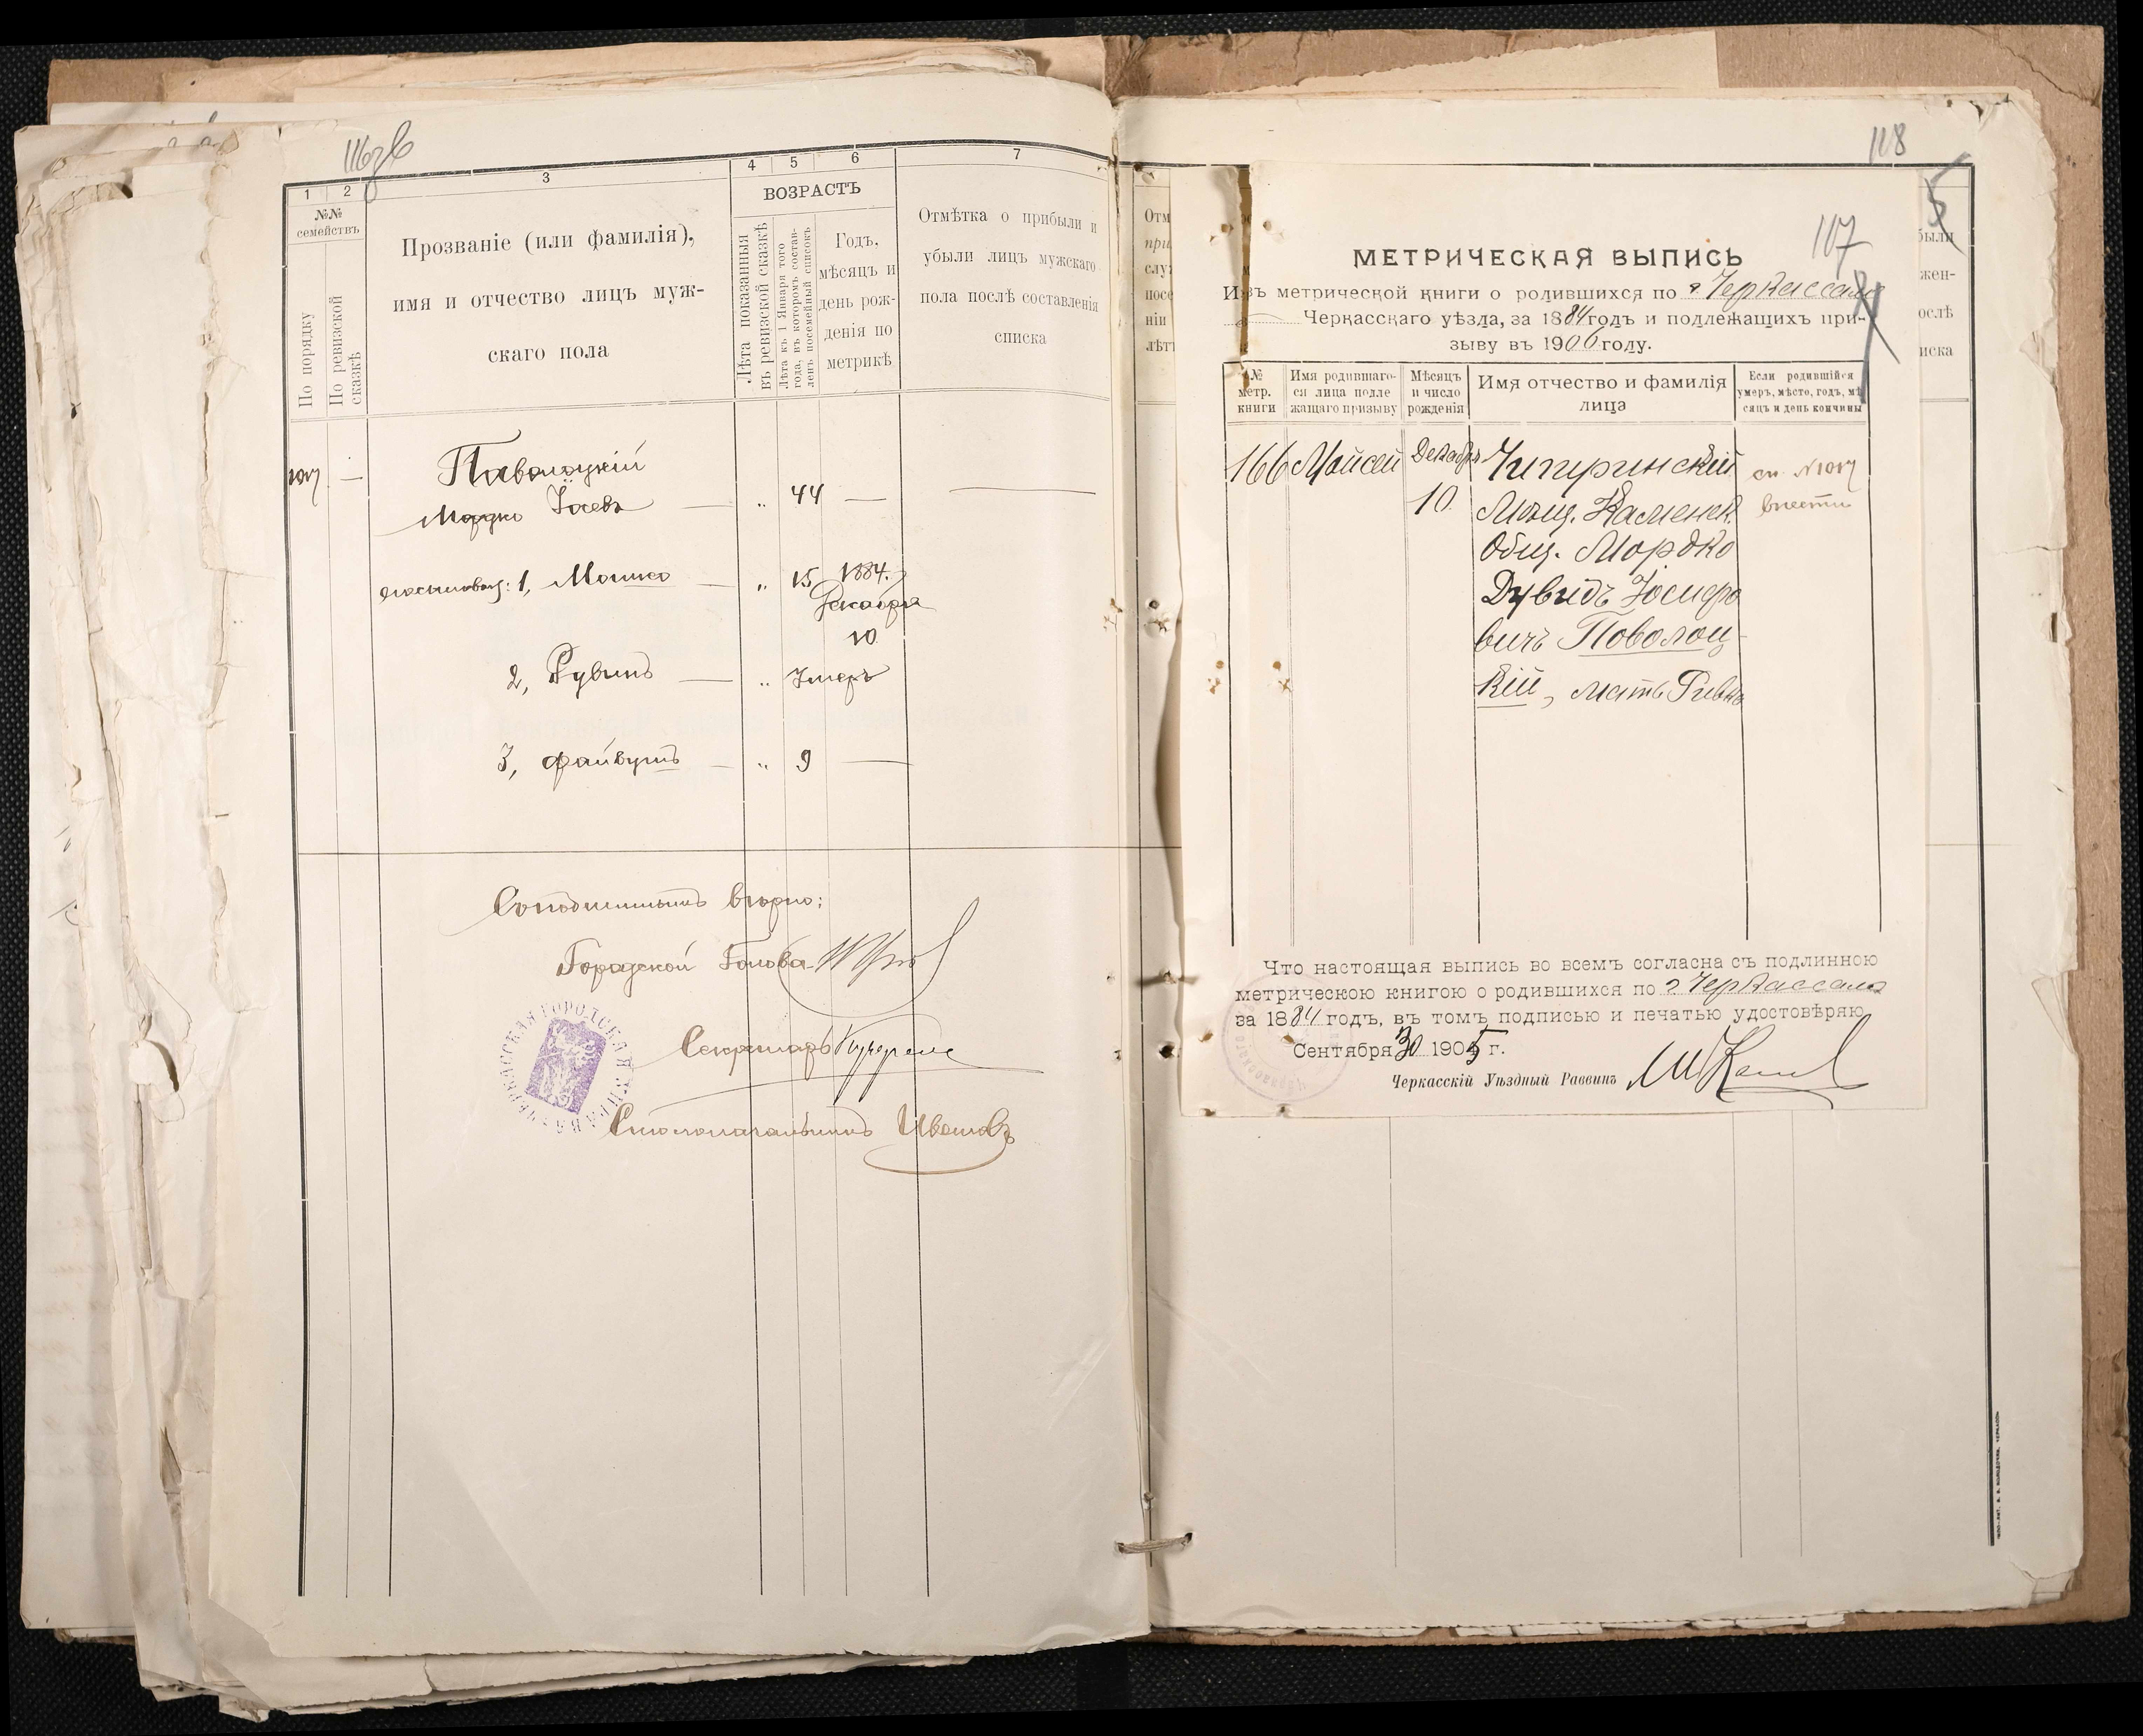 116об
1 2 3 4 5 6 7
№№
семействъ
По порядку
По ревизской
сказкѣ
Прозваніе (или фамилія),
имя и отчество лицъ муж-
скаго пола
ВОЗРАСТЪ
Лѣта показанныя
въ ревизской сказкѣ
Лѣта къ 1 Января того
года, въ которомъ состав-
ленъ посемейный списокъ
Годъ,
мѣсяцъ и
день рож-
денія по
метрикѣ
Отмѣтка о прибыли и
убыли лицъ мужскаго
пола послѣ составленія
списка
1017 —
Паволоцкій
Мордко Іосевъ — „ 44 —
1, Мошко — „ 15 1884.
Декабря
10
2, Рувинъ — „ Умеръ
3, Файвушъ — „ 9 —
Съ подлиннымъ вѣрно:
Городской Голова
Секретарь
Столоначальникъ Ивановъ
ЧЕРКАССКАЯ ГОРОДСКАЯ УПРАВА
118
5
107
МЕТРИЧЕСКАЯ ВЫПИСЬ
Изъ метрической книги о родившихся по г Черкассамъ
Черкасскаго уѣзда, за 1884 годъ и подлежащихъ при-
зыву въ 1906 году.
№
метр.
книги
Имя родившаго-
ся лица подле
жащаго призыву
Мѣсяцъ
и число
рожденія
Имя отчество и фамилія
лица
Если родившійся
умеръ, мѣсто, годъ, мѣ
сяцъ и день кончины
166 Мойсей Декабря Чигиринскій
10. Мѣщ. Каменск.
Общ. Мордко
Дувидъ Іосифо
вичъ Поволоц-
кій, мать Ривка
сп. №1017
внести
Что настоящая выпись во всемъ согласна съ подлинною
метрическою книгою о родившихся по г Черкассамъ
за 1884 годъ, въ томъ подписью и печатью удостовѣряю
Сентября 30 1905 г.
Черкасскій Уѣздный Раввинъ
Отм
при
слу
пос
ніи
лѣт
были
жен-
ослѣ
иска